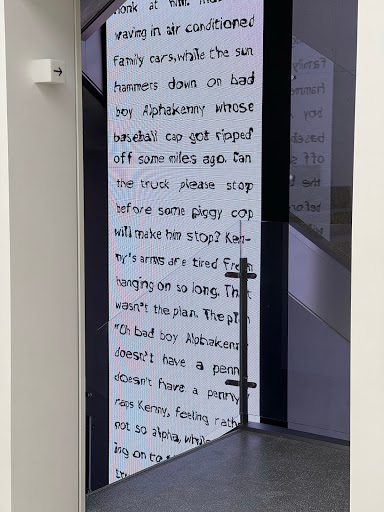 honk at him.
waving in air conditioned
family cars, while the sun
hammers down on bad
boy Alphakenny whose
baseball cap got ripped
off some miles ago. Can
the truck please stop
before some piggy cop
will make him stop? Ken-
ny's arms are tired From
hanging on so long. That
wasn't the plan. The plan
"Oh bad boy Alphakenny
doesn't have a penny
doesn't have a penny"
raps Kenny, feeling rather
not so alpha, while
ing on to